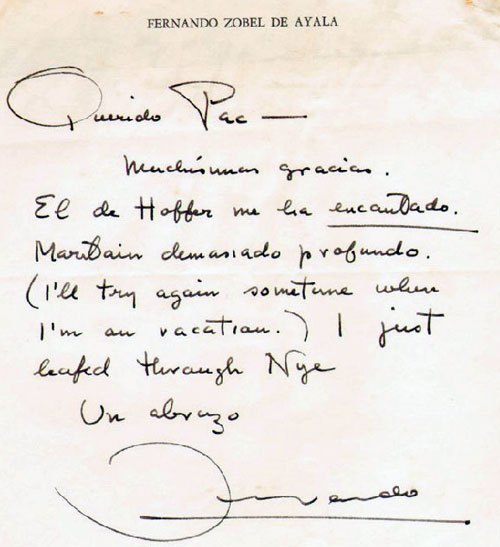 FERNANDO ZOBEL DE AYALA
Querido Pac —
Muchísimas gracias.
El de Hoffer me ha encantado.
Maritain demasiado profundo.
(I'll try again sometime when
I'm on vacation.) I just
leafed through Nye
Un abrazo
Fernando